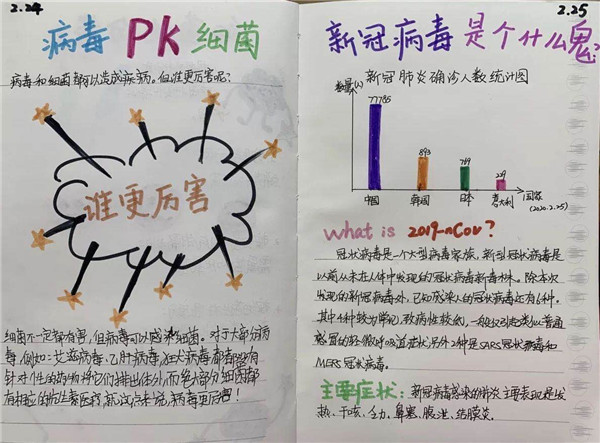 2.24
病毒 PK 细菌
病毒和细菌都可以造成疾病,但谁更厉害呢?
谁更厉害
细菌不一定都有害,但病毒可以感染细菌。对于大部分病
毒,例如:艾滋病毒,乙肝病毒,狂犬病毒都没有
针对性的药物将它们排出体外,而绝大部分细菌都
有相应的抗生素医疗,就这点来说,病毒更厉害!
2.25
新冠病毒是个什么鬼?
数量(人) 新冠肺炎确诊人数统计图
77785
893
769
229
中国 韩国 日本 意大利 国家
(2020.2.25)
what is 2019-nCov?
冠状病毒是一个大型病毒家族,新型冠状病毒是
以前从未在人体中发现的冠状病毒新毒株。除本次
发现的新冠病毒外,已知感染人的冠状病毒还有6种。
其中4种较为常见,致病性较低,一般仅引起类似普通
感冒的轻微呼吸道症状,另外2种是SARS冠状病毒和
MERS冠状病毒。
主要症状:新冠病毒感染的肺炎主要表现是发
热、干咳、乏力、鼻塞、腹泄、结膜炎。